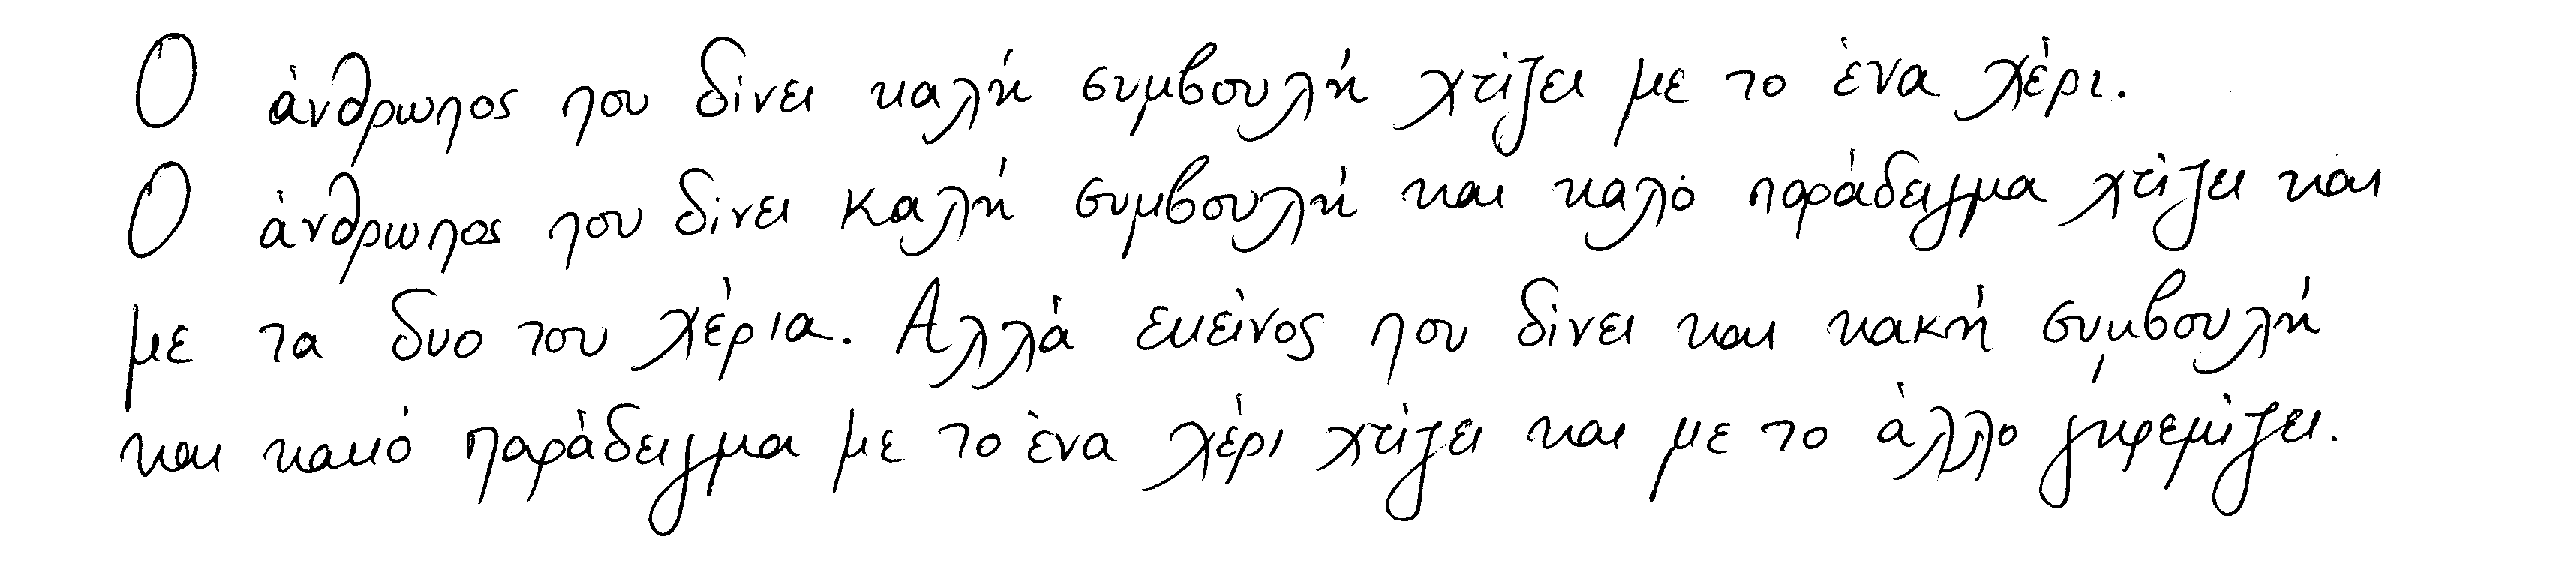 Ο άνθρωπος που δίνει καλή συμβουλή χτίζει με το ένα χέρι.
Ο άνθρωπος που δίνει καλή συμβουλή και καλό παράδειγμα χτίζει και
με τα δυο του χέρια. Αλλά εκείνος που δίνει και κακή συμβουλή
και κακό παράδειγμα με το ένα χέρι χτίζει και με το άλλο γκρεμίζει.